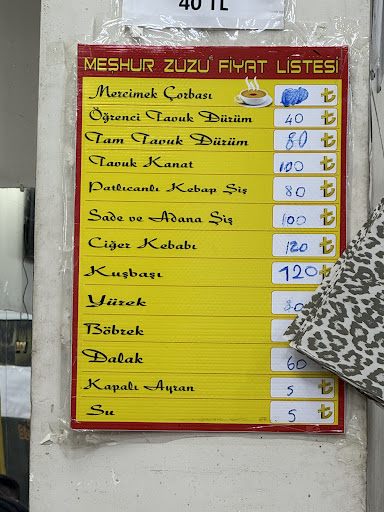 40 TL
MEŞHUR ZUZU FİYAT LİSTESİ
Mercimek Çorbası ₺
Öğrenci Tavuk Dürüm 40 ₺
Tam Tavuk Dürüm 80 ₺
Tavuk Kanat 100 ₺
Patlıcanlı Kebap Şiş 80 ₺
Sade ve Adana Şiş 100 ₺
Ciğer Kebabı 120 ₺
Kuşbaşı 120 ₺
Yürek 80
Böbrek
Dalak 60
Kapalı Ayran 5 ₺
Su 5 ₺